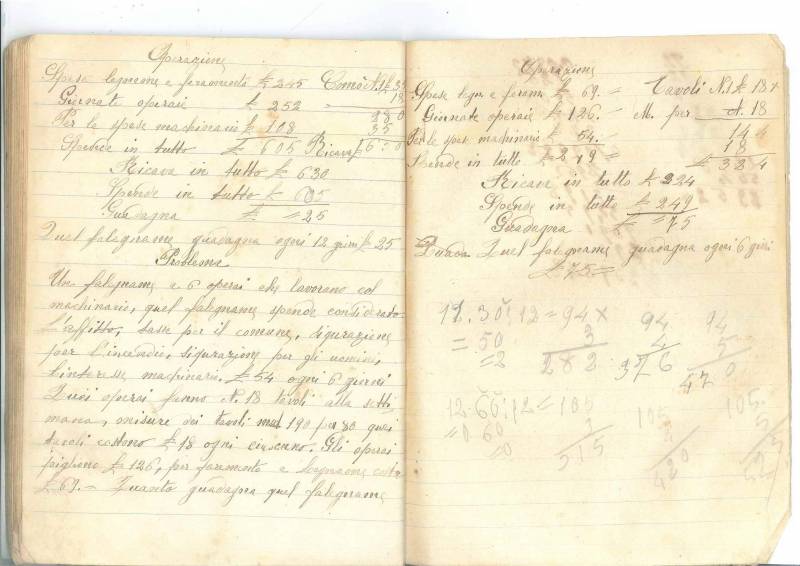 Operazione
Spese legneme e feramento £ 245 Comò N.1 £ 35
Giornate operaii £ 252 18
Per le spese machinario £ 108 280
35
Spende in tutto £ 605 Ricava £ 630
Ricava in tutto £ 630
Spende in tutto £ 605
Guadagna £ = 25
Quel falegname guadagna ogni 12 giorni £ 25
Problema
Un falegname e 6 operai che lavorano col
machinario, quel falegname spende considerato
l'affitto, tasse per il comune, sigurazione
per l'incendio, sigurazione per gli uomini,
l'interesse machinario. £ 54 ogni 6 giorni
Quei operai fanno N. 18 tavoli alla setti
mana, misure dei tavoli 190 per 80 quei
tavoli costono £ 18 ogni ciascuno. Gli operai
pigliono £ 126, per faramento e legname
£ 69.- Quanto guadagna quel falegname
Operazione
Spese legn. e feram £ 69. = Tavoli N.1 £ 18
Giornate operaii £ 126. = M. per 18
Per le spes. machinario £ 54. = 144
18
Spende in tutto £ 249 = £ 324
Ricava in tutto £ 324
Spende in tutto £ 249
Guadagna £ = 75
Quel falegname guadagna ogni 6 giorni
£ 75.=
12 = 94 × 94 94
= 50 3 4 5
= 2 282 376 470
12.60:12 = 105 105 105
= 0 60 3
= 0 315 420